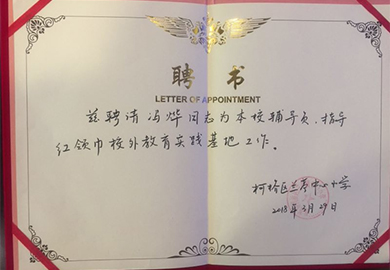 聘书
LETTER OF APPOINTMENT
兹聘请冯烨同志为本校辅导员,指导
红领巾校外教育实践基地工作。
柯桥区兰亭中心小学
2018年3月29日